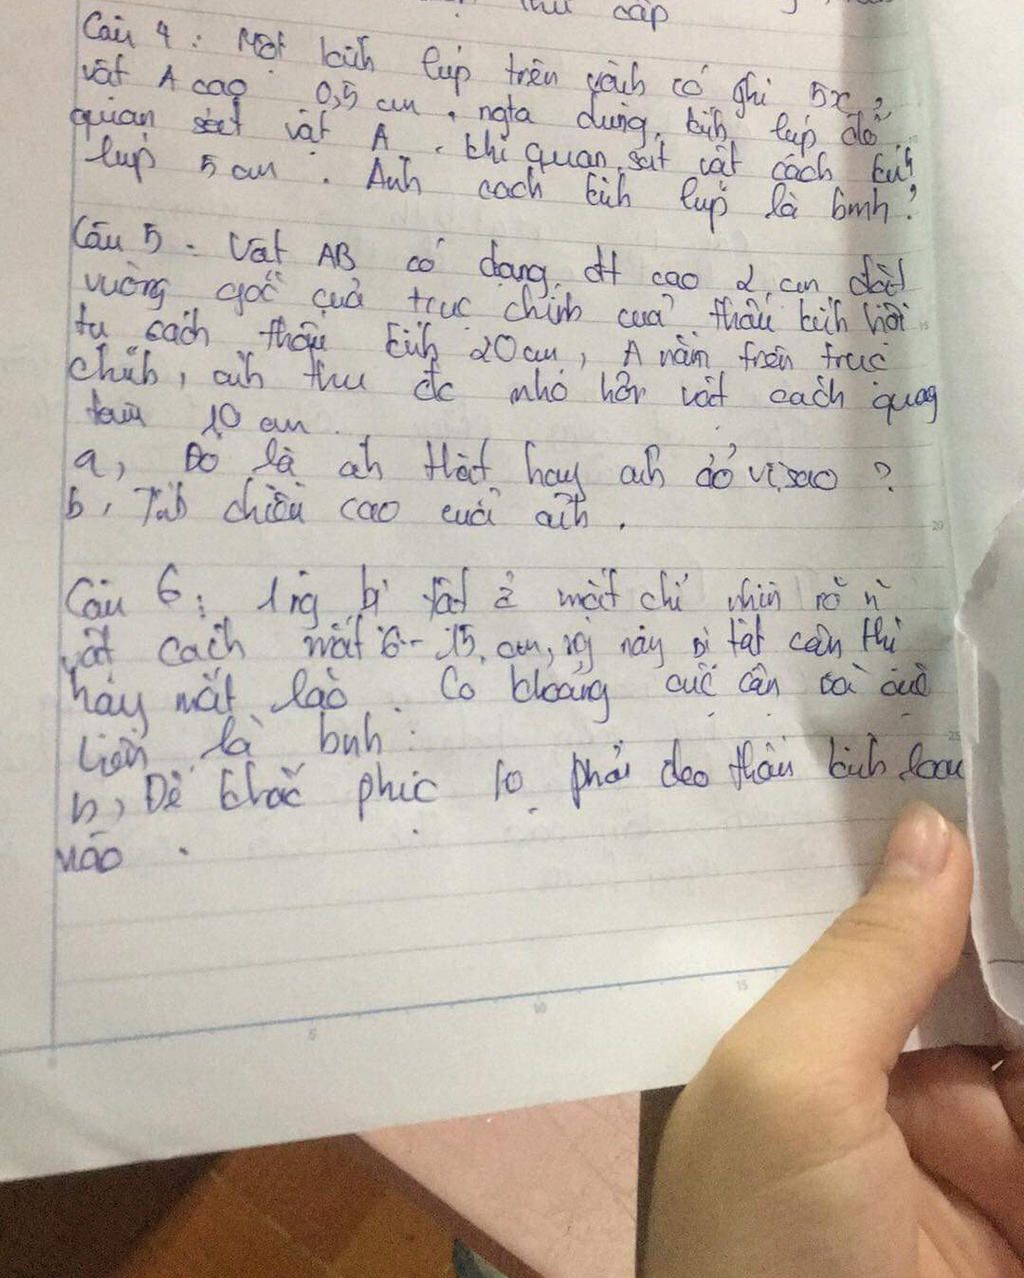 thứ cấp
Câu 4 : Một kính lúp trên vành có ghi 5x,
vật A cao 0,5 cm . ngta dùng kính lúp để
quan sát vật A . khi quan sát vật cách kính
lúp 5 cm . Ảnh cách kính lúp là bnh ?
Câu 5 . Vật AB có dạng đt cao 2 cm đặt
vuông góc của trục chính của thấu kính hội
tụ cách thấu kính 20 cm, A nằm trên trục
chính, ảnh thu đc nhỏ hơn vật cách quag
tâm 10 cm .
a, Đó là ảnh thật hay ảnh ảo vì sao ?
b, Tính chiều cao cuả ảnh .
Câu 6 : 1 ng bị tật ở mắt chỉ nhìn rõ n
vật cách mắt 6 - 15 cm, ng này bị tật cận thị
hay mắt lão . Có khoảng cực cận và cực
viễn là bnh :
b, Để khắc phục phải đeo thấu kính loại
nào .
5 10 15
15
20
25